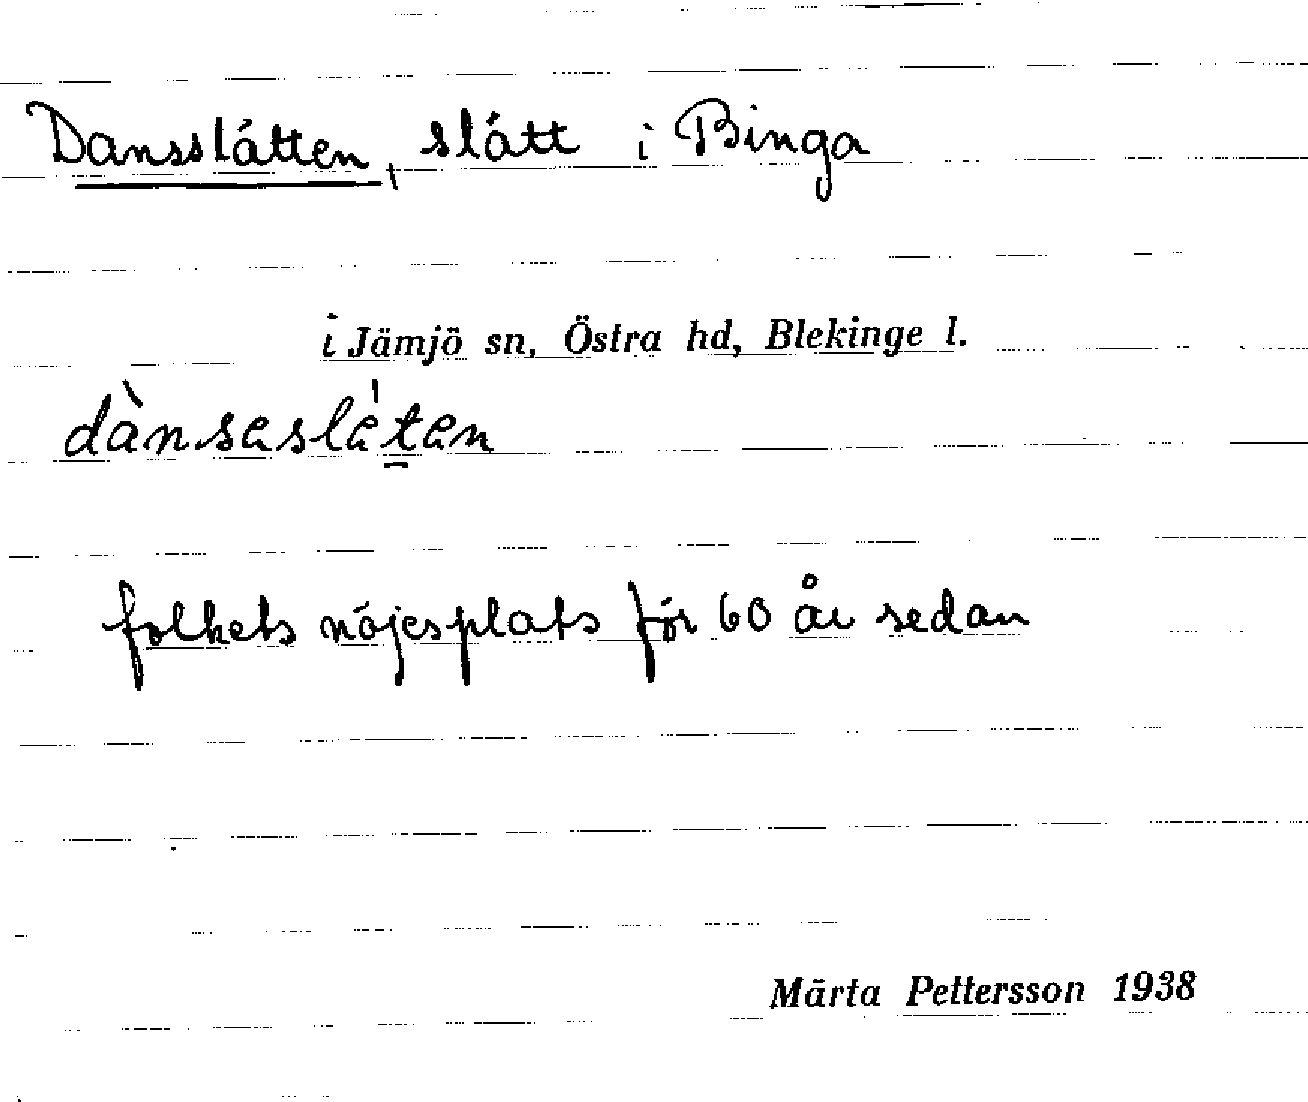 Dansslätten, slätt i Binga
i Jämjö sn, Östra hd, Blekinge l.
dànsəslètən
folkets nöjesplats för 60 år sedan
Märta Pettersson 1938